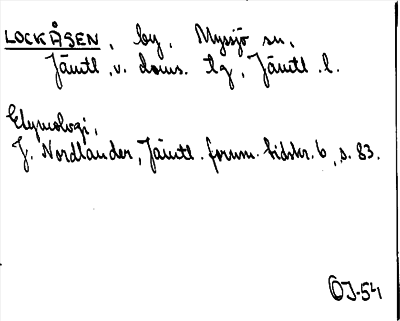 LOCKÅSEN, by, Myssjö sn,
Jämtl. v. doms. tg, Jämtl. l.
Etymologi,
J. Nordlander, Jämtl. fornm. tidskr. 6, s. 83.
ÖJ-54